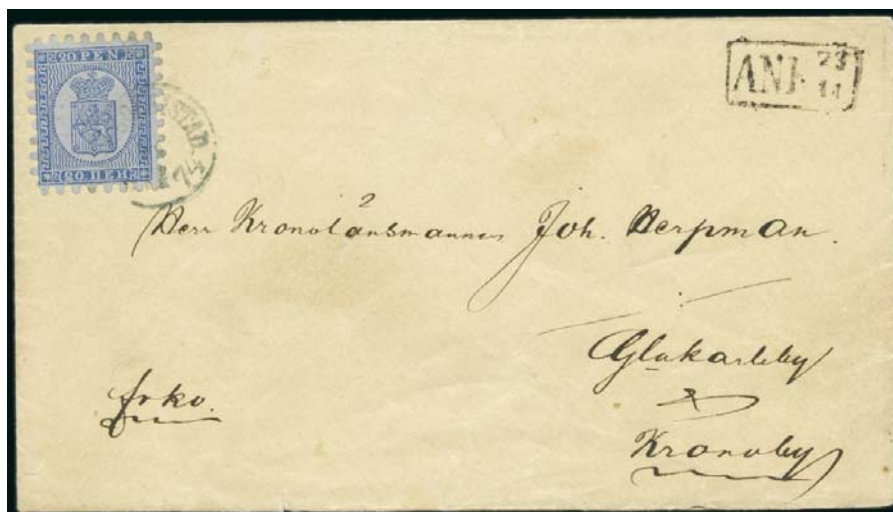 20 PEN.
20 ПЕН.
STAD
ANK 23
11
Herr Kronolänsmannen Joh. Bergman.
Glakarleby
Kronoby
frko.